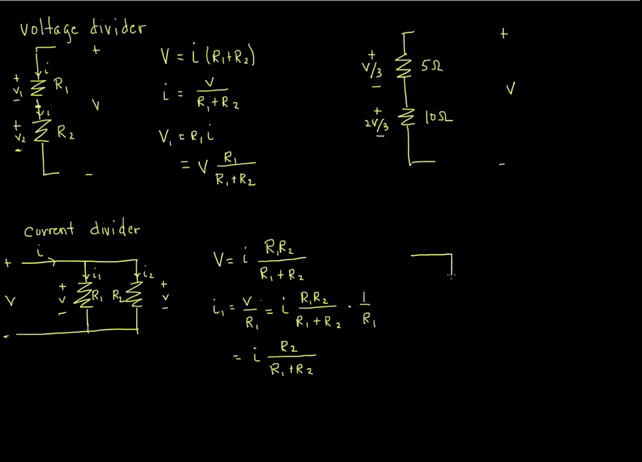 voltage divider
+
i
+
V₁
-
R₁
i
V
+
V₂
-
R₂
-
V = i (R₁+R₂)
i = V / R₁+R₂
V₁ = R₁ i
= V R₁ / R₁+R₂
+
V/3
-
5Ω
+
2V/3
-
10Ω
+
V
-
current divider
+
i
V
-
i₁
+
V
-
R₁
i₂
R₂
+
V
-
V = i R₁R₂ / R₁+R₂
i₁ = V / R₁ = i R₁R₂ / R₁+R₂ · 1 / R₁
= i R₂ / R₁+R₂